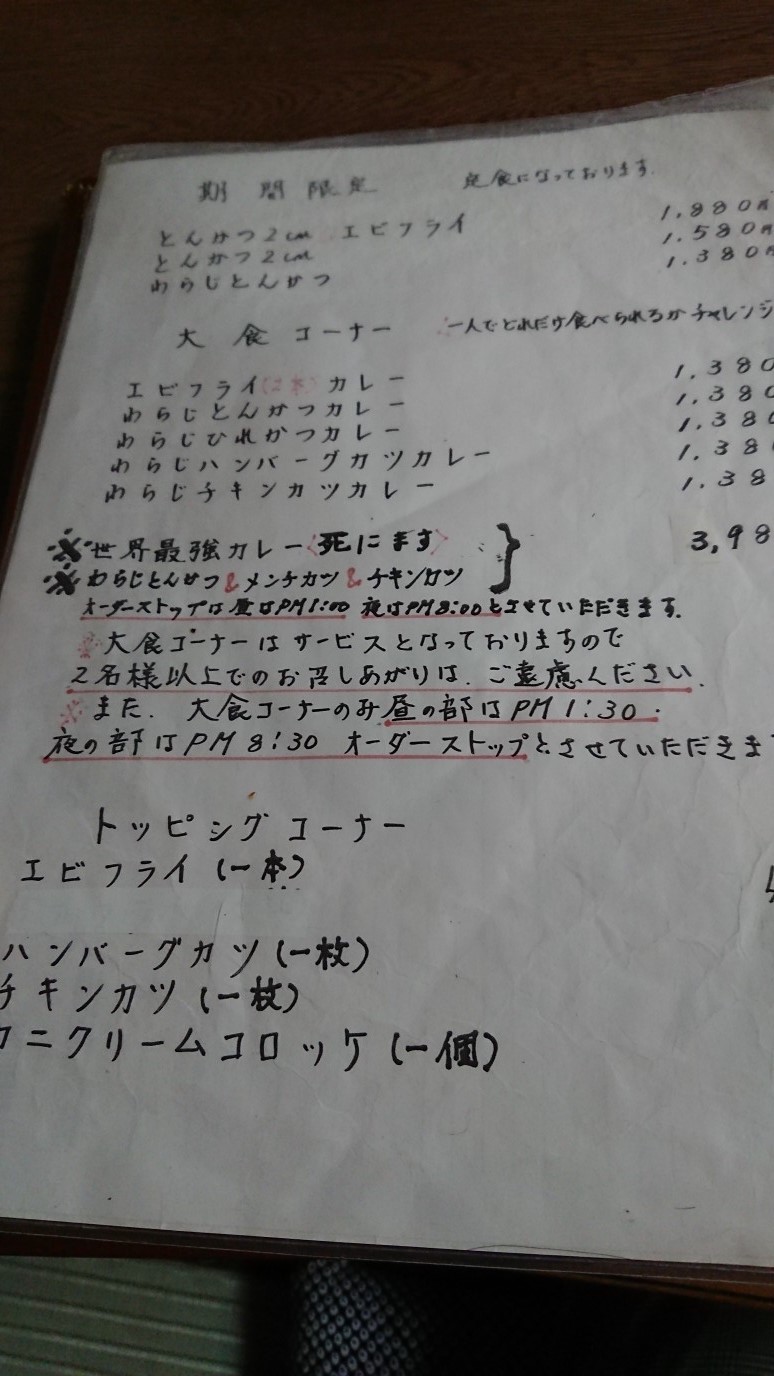 期間限定 定食になっております.
とんかつ2cm エビフライ 1,880円
とんかつ2cm 1,580円
わらじとんかつ 1,380円
大食コーナー 一人でどれだけ食べられるかチャレンジ
エビフライ(2本)カレー 1,380
わらじとんかつカレー 1,380
わらじひれかつカレー 1,380
わらじハンバーグカツカレー 1,38
わらじチキンカツカレー 1,38
※世界最強カレー〈死にます〉 3,98
※わらじとんかつ&メンチカツ&チキンカツ
オーダーストップは昼はPM1:00 夜はPM8:00とさせていただきます.
※大食コーナーはサービスとなっておりますので
2名様以上でのお召しあがりは.ご遠慮ください.
※また.大食コーナーのみ昼の部はPM1:30.
夜の部はPM8:30 オーダーストップとさせていただきま
トッピングコーナー
エビフライ(一本)
ハンバーグカツ(一枚)
チキンカツ(一枚)
カニクリームコロッケ(一個)